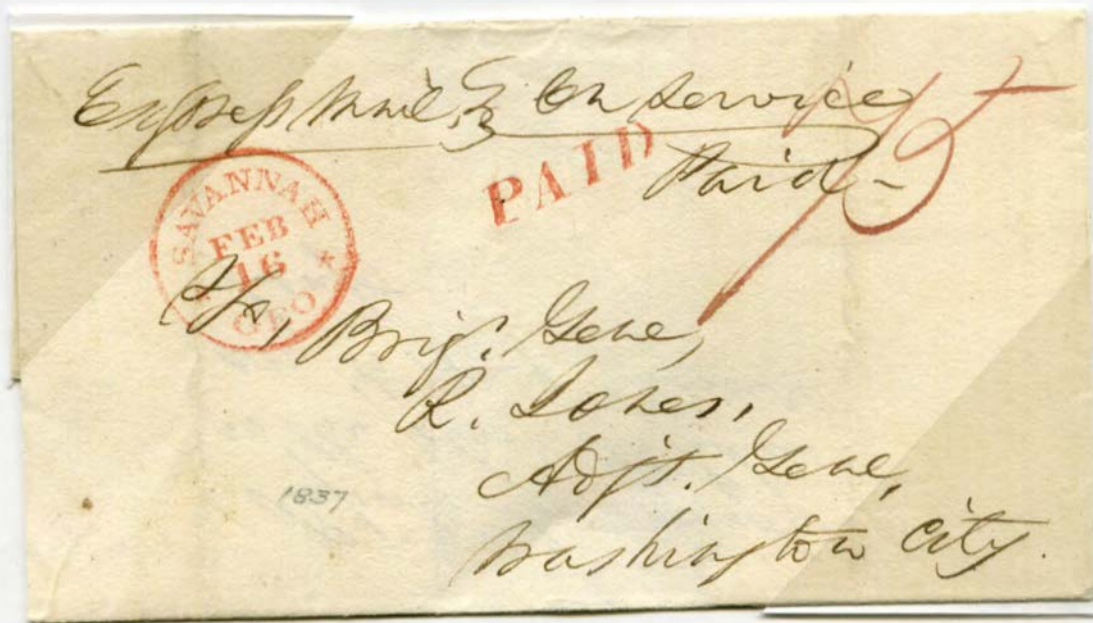 Express Mail, On Service
Paid -
PAID
75
SAVANNAH
FEB
16
GEO
To, Brig. Genl,
R. Jones,
Adjt. Genl,
Washington City.
1837